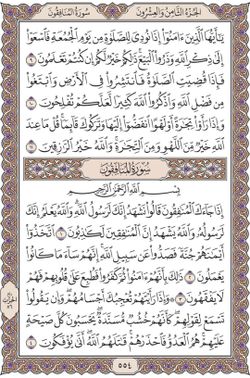 الجزء الثامن والعشرون سورة المنافقون
يَٰٓأَيُّهَا ٱلَّذِينَ ءَامَنُوٓا۟ إِذَا نُودِىَ لِلصَّلَوٰةِ مِن يَوْمِ ٱلْجُمُعَةِ فَٱسْعَوْا۟
إِلَىٰ ذِكْرِ ٱللَّهِ وَذَرُوا۟ ٱلْبَيْعَ ذَٰلِكُمْ خَيْرٌ لَّكُمْ إِن كُنتُمْ تَعْلَمُونَ ٩
فَإِذَا قُضِيَتِ ٱلصَّلَوٰةُ فَٱنتَشِرُوا۟ فِى ٱلْأَرْضِ وَٱبْتَغُوا۟
مِن فَضْلِ ٱللَّهِ وَٱذْكُرُوا۟ ٱللَّهَ كَثِيرًا لَّعَلَّكُمْ تُفْلِحُونَ ١٠
وَإِذَا رَأَوْا۟ تِجَٰرَةً أَوْ لَهْوًا ٱنفَضُّوٓا۟ إِلَيْهَا وَتَرَكُوكَ قَآئِمًا قُلْ مَا عِندَ
ٱللَّهِ خَيْرٌ مِّنَ ٱللَّهْوِ وَمِنَ ٱلتِّجَٰرَةِ وَٱللَّهُ خَيْرُ ٱلرَّٰزِقِينَ ١١
سورة المنافقون
بِسْمِ ٱللَّهِ ٱلرَّحْمَٰنِ ٱلرَّحِيمِ
إِذَا جَآءَكَ ٱلْمُنَٰفِقُونَ قَالُوا۟ نَشْهَدُ إِنَّكَ لَرَسُولُ ٱللَّهِ وَٱللَّهُ يَعْلَمُ إِنَّكَ
لَرَسُولُهُۥ وَٱللَّهُ يَشْهَدُ إِنَّ ٱلْمُنَٰفِقِينَ لَكَٰذِبُونَ ١
ٱتَّخَذُوٓا۟ أَيْمَٰنَهُمْ جُنَّةً فَصَدُّوا۟ عَن سَبِيلِ ٱللَّهِ إِنَّهُمْ سَآءَ مَا كَانُوا۟
يَعْمَلُونَ ٢ ذَٰلِكَ بِأَنَّهُمْ ءَامَنُوا۟ ثُمَّ كَفَرُوا۟ فَطُبِعَ عَلَىٰ قُلُوبِهِمْ فَهُمْ
لَا يَفْقَهُونَ ٣ وَإِذَا رَأَيْتَهُمْ تُعْجِبُكَ أَجْسَامُهُمْ وَإِن يَقُولُوا۟
تَسْمَعْ لِقَوْلِهِمْ كَأَنَّهُمْ خُشُبٌ مُّسَنَّدَةٌ يَحْسَبُونَ كُلَّ صَيْحَةٍ
عَلَيْهِمْ هُمُ ٱلْعَدُوُّ فَٱحْذَرْهُمْ قَٰتَلَهُمُ ٱللَّهُ أَنَّىٰ يُؤْفَكُونَ ٤
٥٥٤